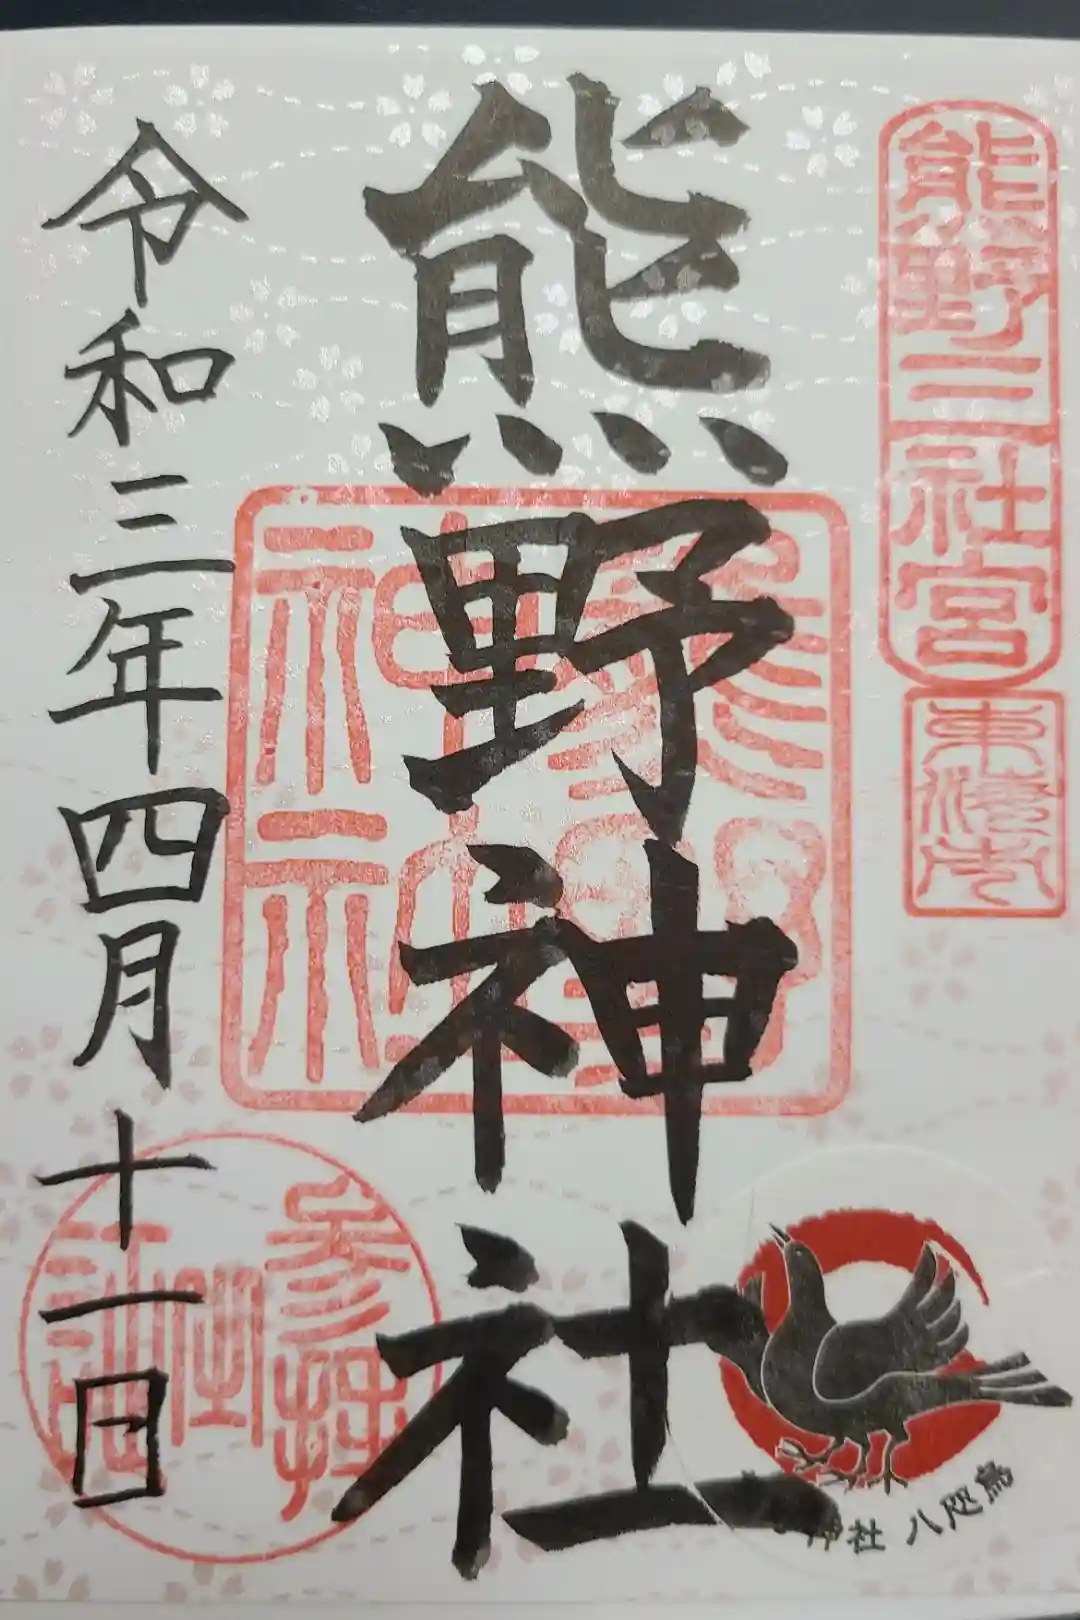 熊野三社宮
東海市
熊野神社
参拝
記念
令和三年四月十一日
神社 八咫烏